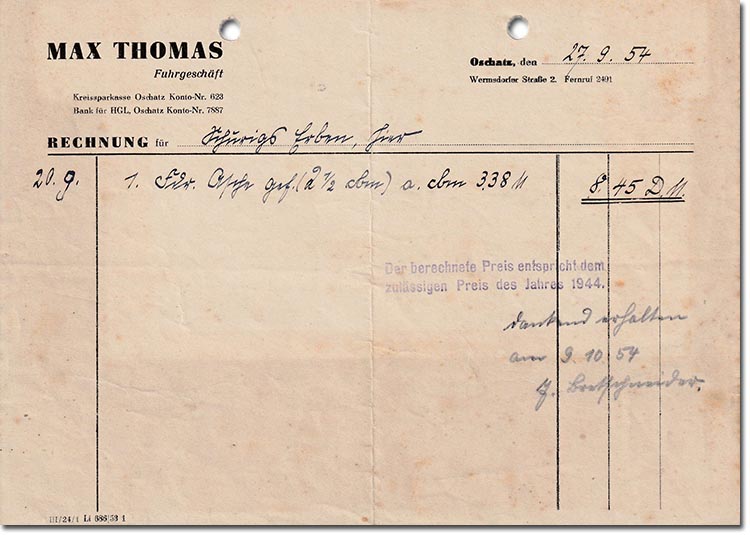 MAX THOMAS
Fuhrgeschäft
Kreissparkasse Oschatz Konto-Nr. 623
Bank für HGL, Oschatz Konto-Nr. 7887
Oschatz, den 27. 9. 54
Wermsdorfer Straße 2. Fernruf 2491
RECHNUNG für Schurigs Erben, hier
20. 9. 1. Fdr. Asche gef. (2 1/2 cbm) a. cbm 3,38 M 8, 45 D. M.
Der berechnete Preis entspricht dem
zulässigen Preis des Jahres 1944.
dankend erhalten
am 9 10 54
Bretschneider.
III/24/1 Li 686/53 1